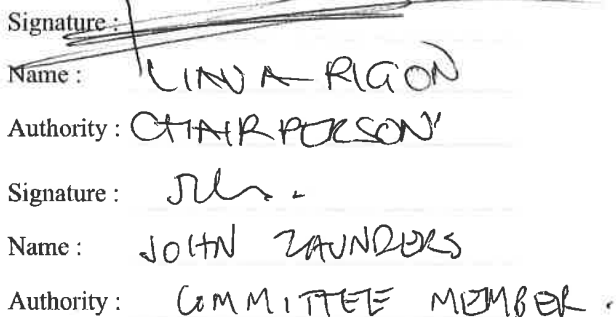 Signature :
Name : LINA RIGON
Authority : CHAIRPERSON
Signature :
Name : JOHN ZAUNDERS
Authority : COMMITTEE MEMBER.